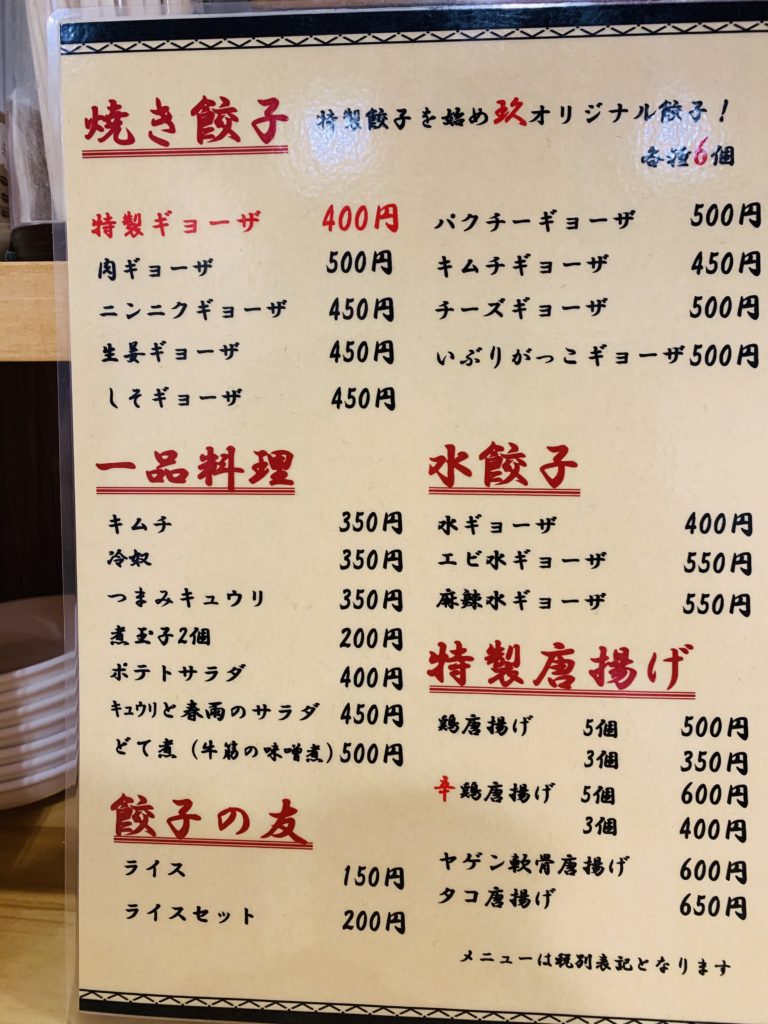 焼き餃子 特製餃子を始め玖オリジナル餃子！
各種6個
特製ギョーザ 400円
肉ギョーザ 500円
ニンニクギョーザ 450円
生姜ギョーザ 450円
しそギョーザ 450円
パクチーギョーザ 500円
キムチギョーザ 450円
チーズギョーザ 500円
いぶりがっこギョーザ 500円
一品料理
キムチ 350円
冷奴 350円
つまみキュウリ 350円
煮玉子2個 200円
ポテトサラダ 400円
ｷｭｳﾘと春雨のサラダ 450円
どて煮（牛筋の味噌煮）500円
餃子の友
ライス 150円
ライスセット 200円
水餃子
水ギョーザ 400円
エビ水ギョーザ 550円
麻辣水ギョーザ 550円
特製唐揚げ
鶏唐揚げ 5個 500円
3個 350円
辛鶏唐揚げ 5個 600円
3個 400円
ヤゲン軟骨唐揚げ 600円
タコ唐揚げ 650円
メニューは税別表記となります